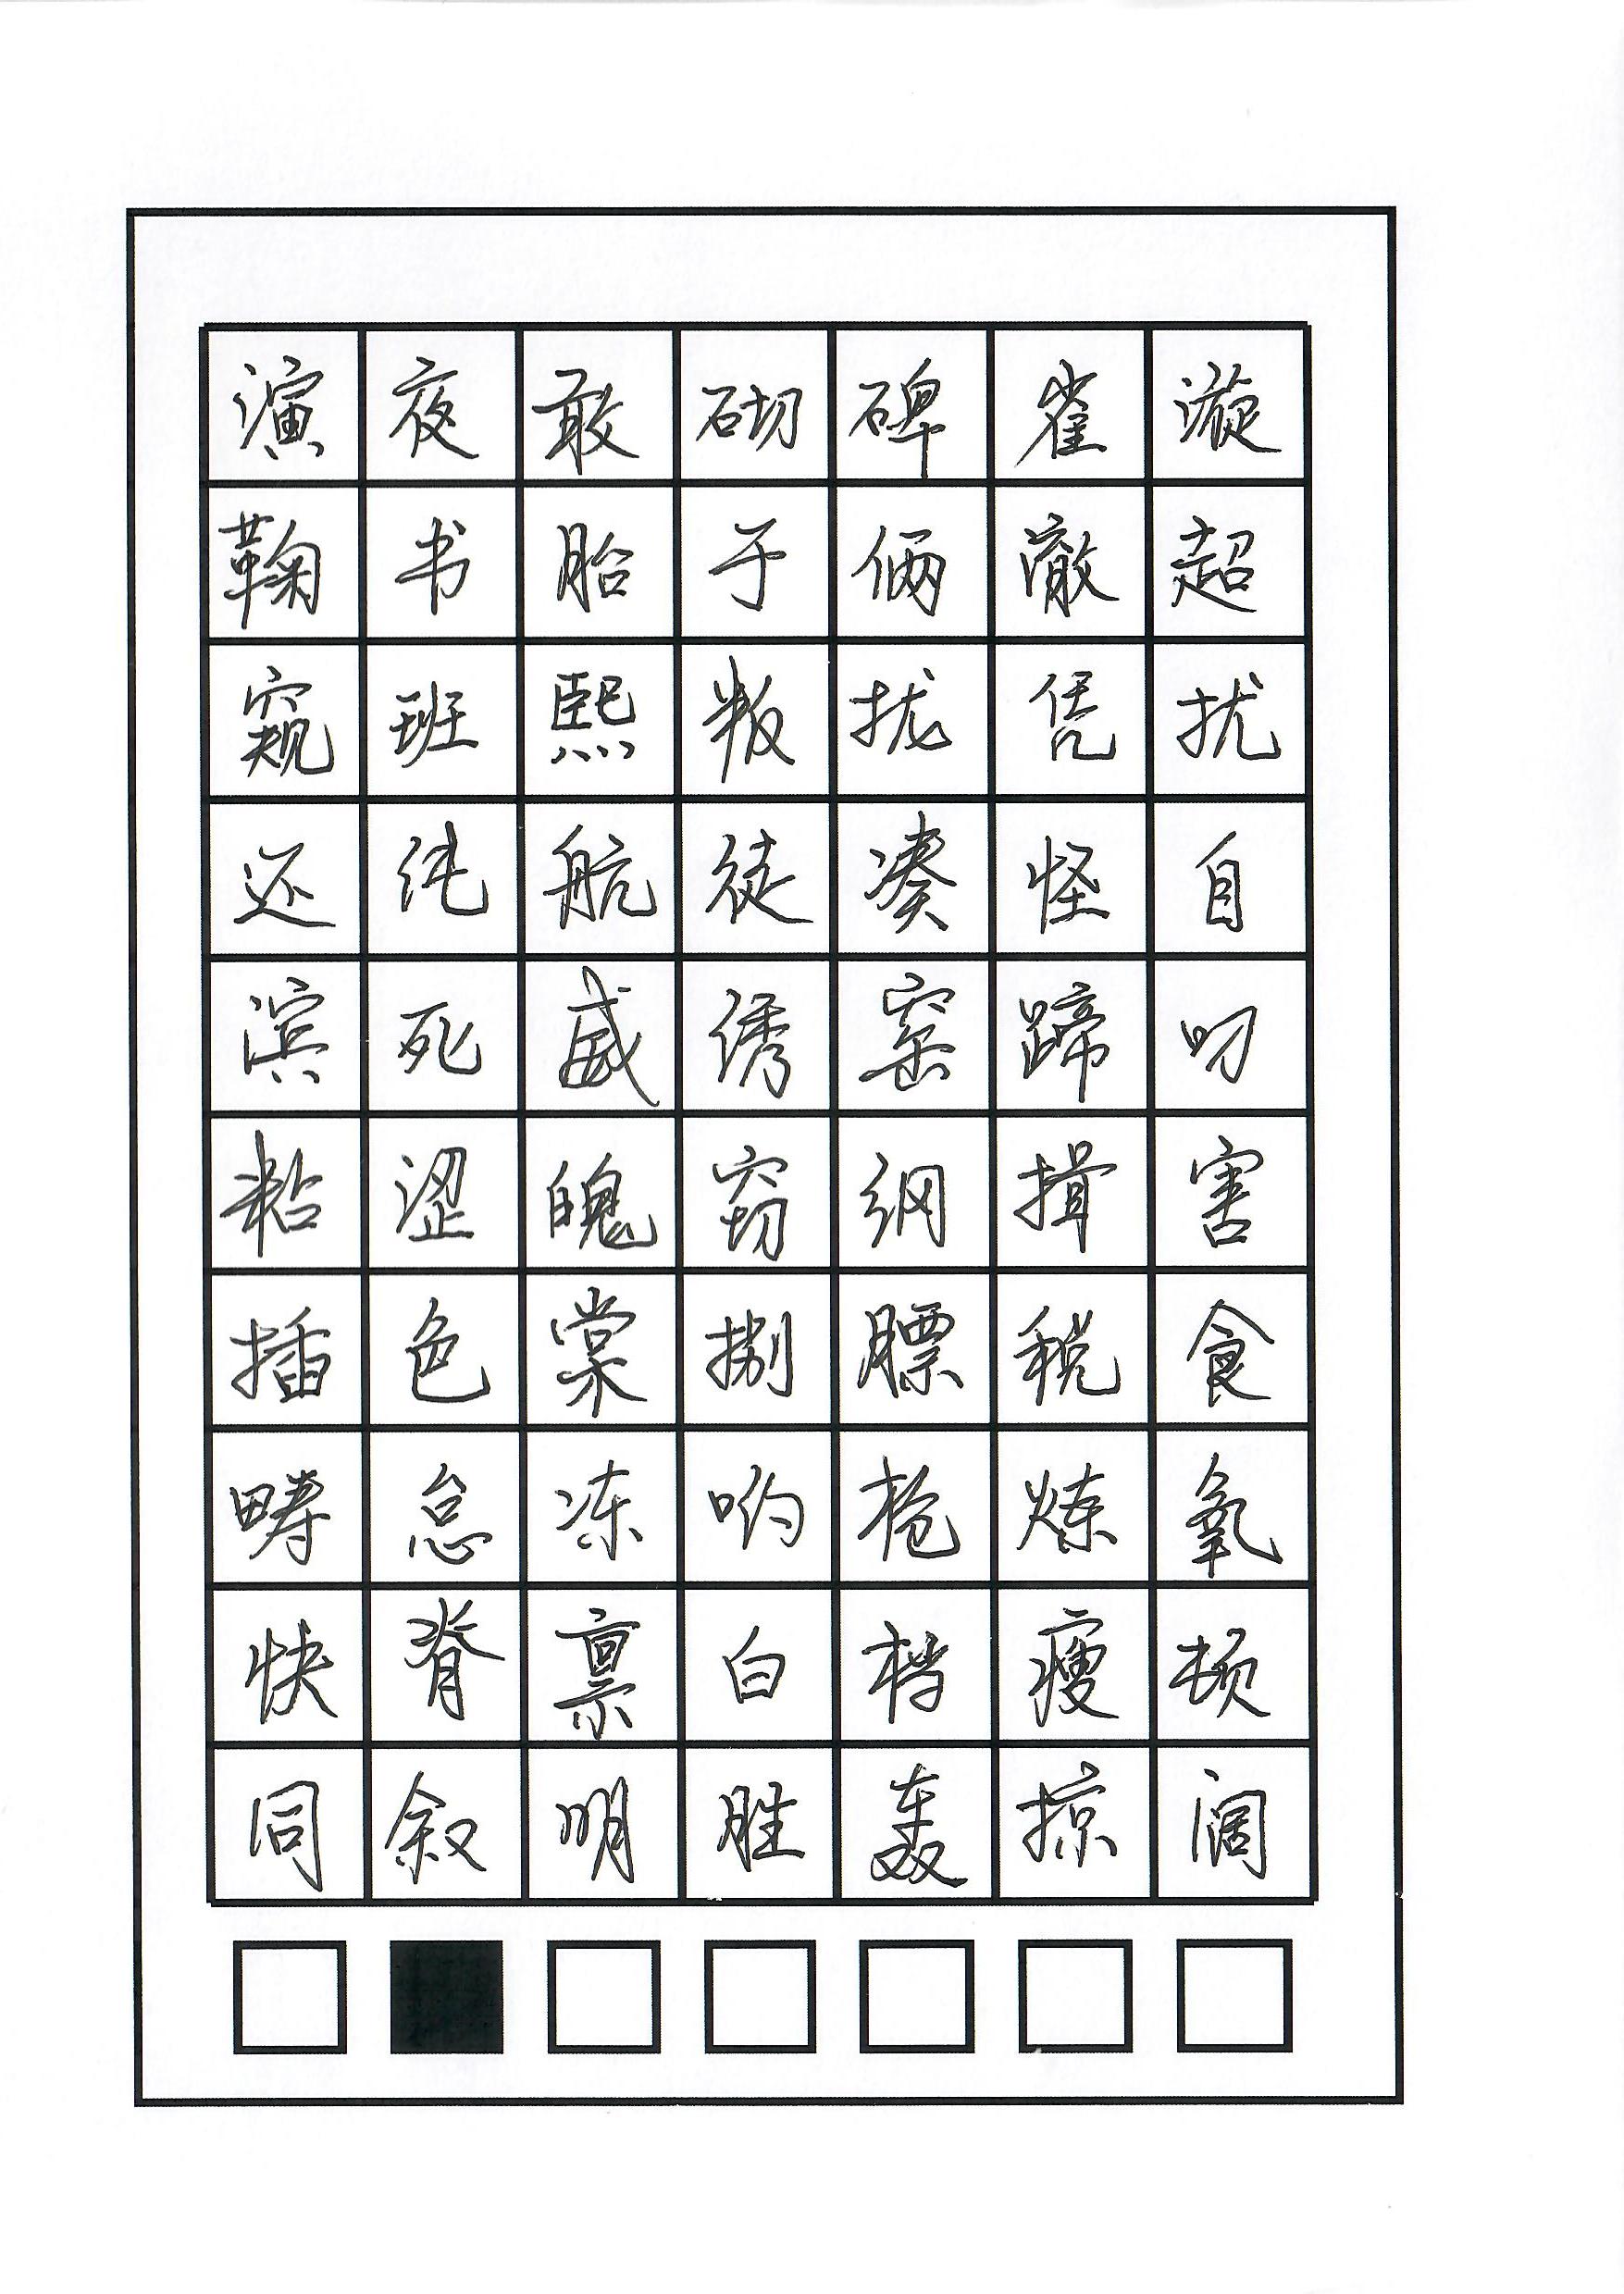 演夜敢砌碑雀漩
鞠书胎于俩澈超
窥班熙叛拢凭扰
还纯航徒凑怪自
滨死威诱窑蹄叨
粘涩魄窃纲揖害
插色棠捌膘税食
畴怠冻哟枪炼氧
快脊禀白档瘦顿
同叙明胜轰掠阔